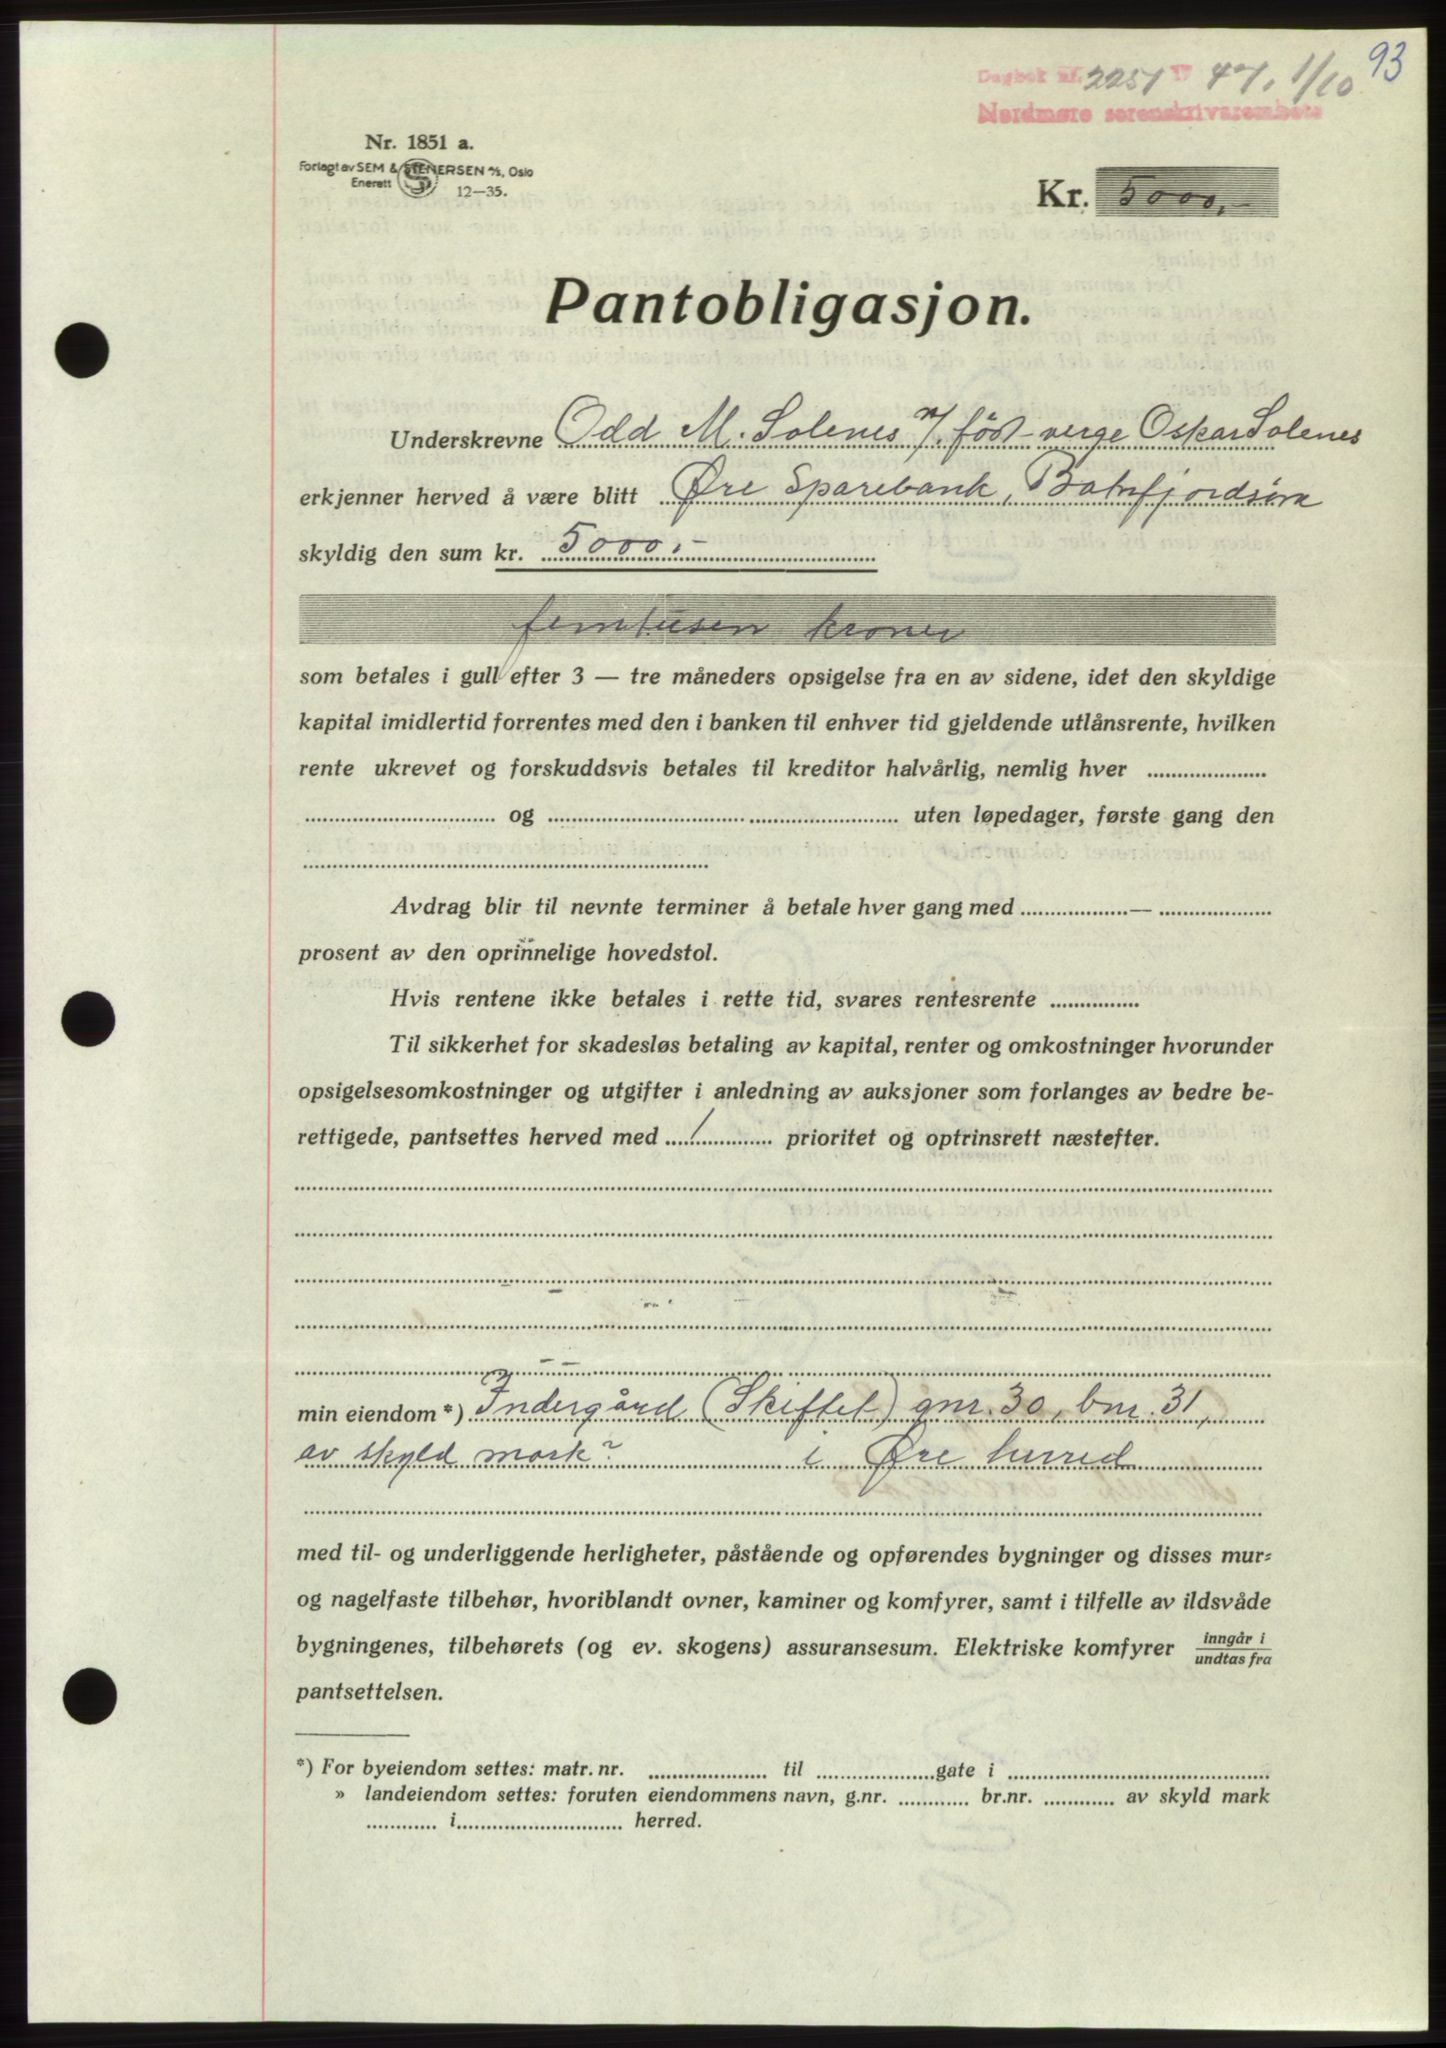 93
Dagbok nr. 2251 19 47. 1/10
Nordmøre sorenskrivarembete
Nr. 1851 a.
Forlagt av SEM & STENERSEN A/S, Oslo
Enerett 12—35.
Kr. 5000,-
Pantobligasjon.
Underskrevne Odd M. Solenes m/ född verge Oskar Solenes
erkjenner herved å være blitt Øre Sparebank, Batnfjordsøra
skyldig den sum kr. 5000.-
femtusen kroner
som betales i gull efter 3 — tre måneders opsigelse fra en av sidene, idet den skyldige
kapital imidlertid forrentes med den i banken til enhver tid gjeldende utlånsrente, hvilken
rente ukrevet og forskuddsvis betales til kreditor halvårlig, nemlig hver ....................
.................... og .................... uten løpedager, første gang den
....................
Avdrag blir til nevnte terminer å betale hver gang med ..................—..................
prosent av den oprinnelige hovedstol.
Hvis rentene ikke betales i rette tid, svares rentesrente ...............
Til sikkerhet for skadesløs betaling av kapital, renter og omkostninger hvorunder
opsigelsesomkostninger og utgifter i anledning av auksjoner som forlanges av bedre be-
rettigede, pantsettes herved med 1 prioritet og optrinsrett næstefter.
min eiendom *) Indergård (Skiftet) gnr. 30, bnr. 31,
av skyld mark ? i Øre herred
med til- og underliggende herligheter, påstående og opførendes bygninger og disses mur-
og nagelfaste tilbehør, hvoriblandt ovner, kaminer og komfyrer, samt i tilfelle av ildsvåde
bygningenes, tilbehørets (og ev. skogens) assuransesum. Elektriske komfyrer inngår i / undtas fra
pantsettelsen.
*) For byeiendom settes: matr. nr. .................... til ....................gate i ....................
» landeiendom settes: foruten eiendommens navn, g.nr. ............ br.nr. ............ av skyld mark
............ i............................ herred.